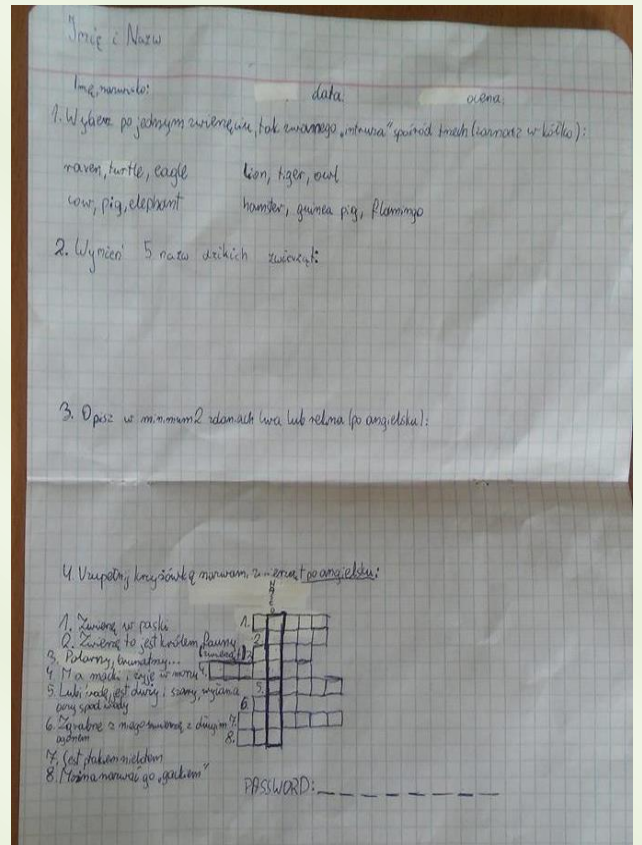 Imię i Nazw
Imię, nazwisko: data: ocena:
1. Wybierz po jednym zwierzęciu, tak zwanego „intruza” spośród trzech (zaznacz w kółko):
raven, turtle, eagle lion, tiger, owl
cow, pig, elephant hamster, guinea pig, flamingo
2. Wymień 5 nazw dzikich zwierząt:
3. Opisz w minimum 2 zdaniach lwa lub rekina (po angielsku):
4. Uzupełnij krzyżówkę nazwami zwierząt po angielsku:
1. Zwierzę w paski
2. Zwierzę to jest królem fauny (zwierząt)
3. Polarny, brunatny...
4. Ma macki i żyje w morzu
5. Lubi wodę, jest duży i szary, wyłania
głowę spod wody
6. Zgrabne z niego zwierzę z długim
ogonem
7. Jest ptakiem nielotem
8. Można nazwać go „gackiem”
1.
2.
3.
4.
5.
6.
7.
8.
PASSWORD: _ _ _ _ _ _ _ _